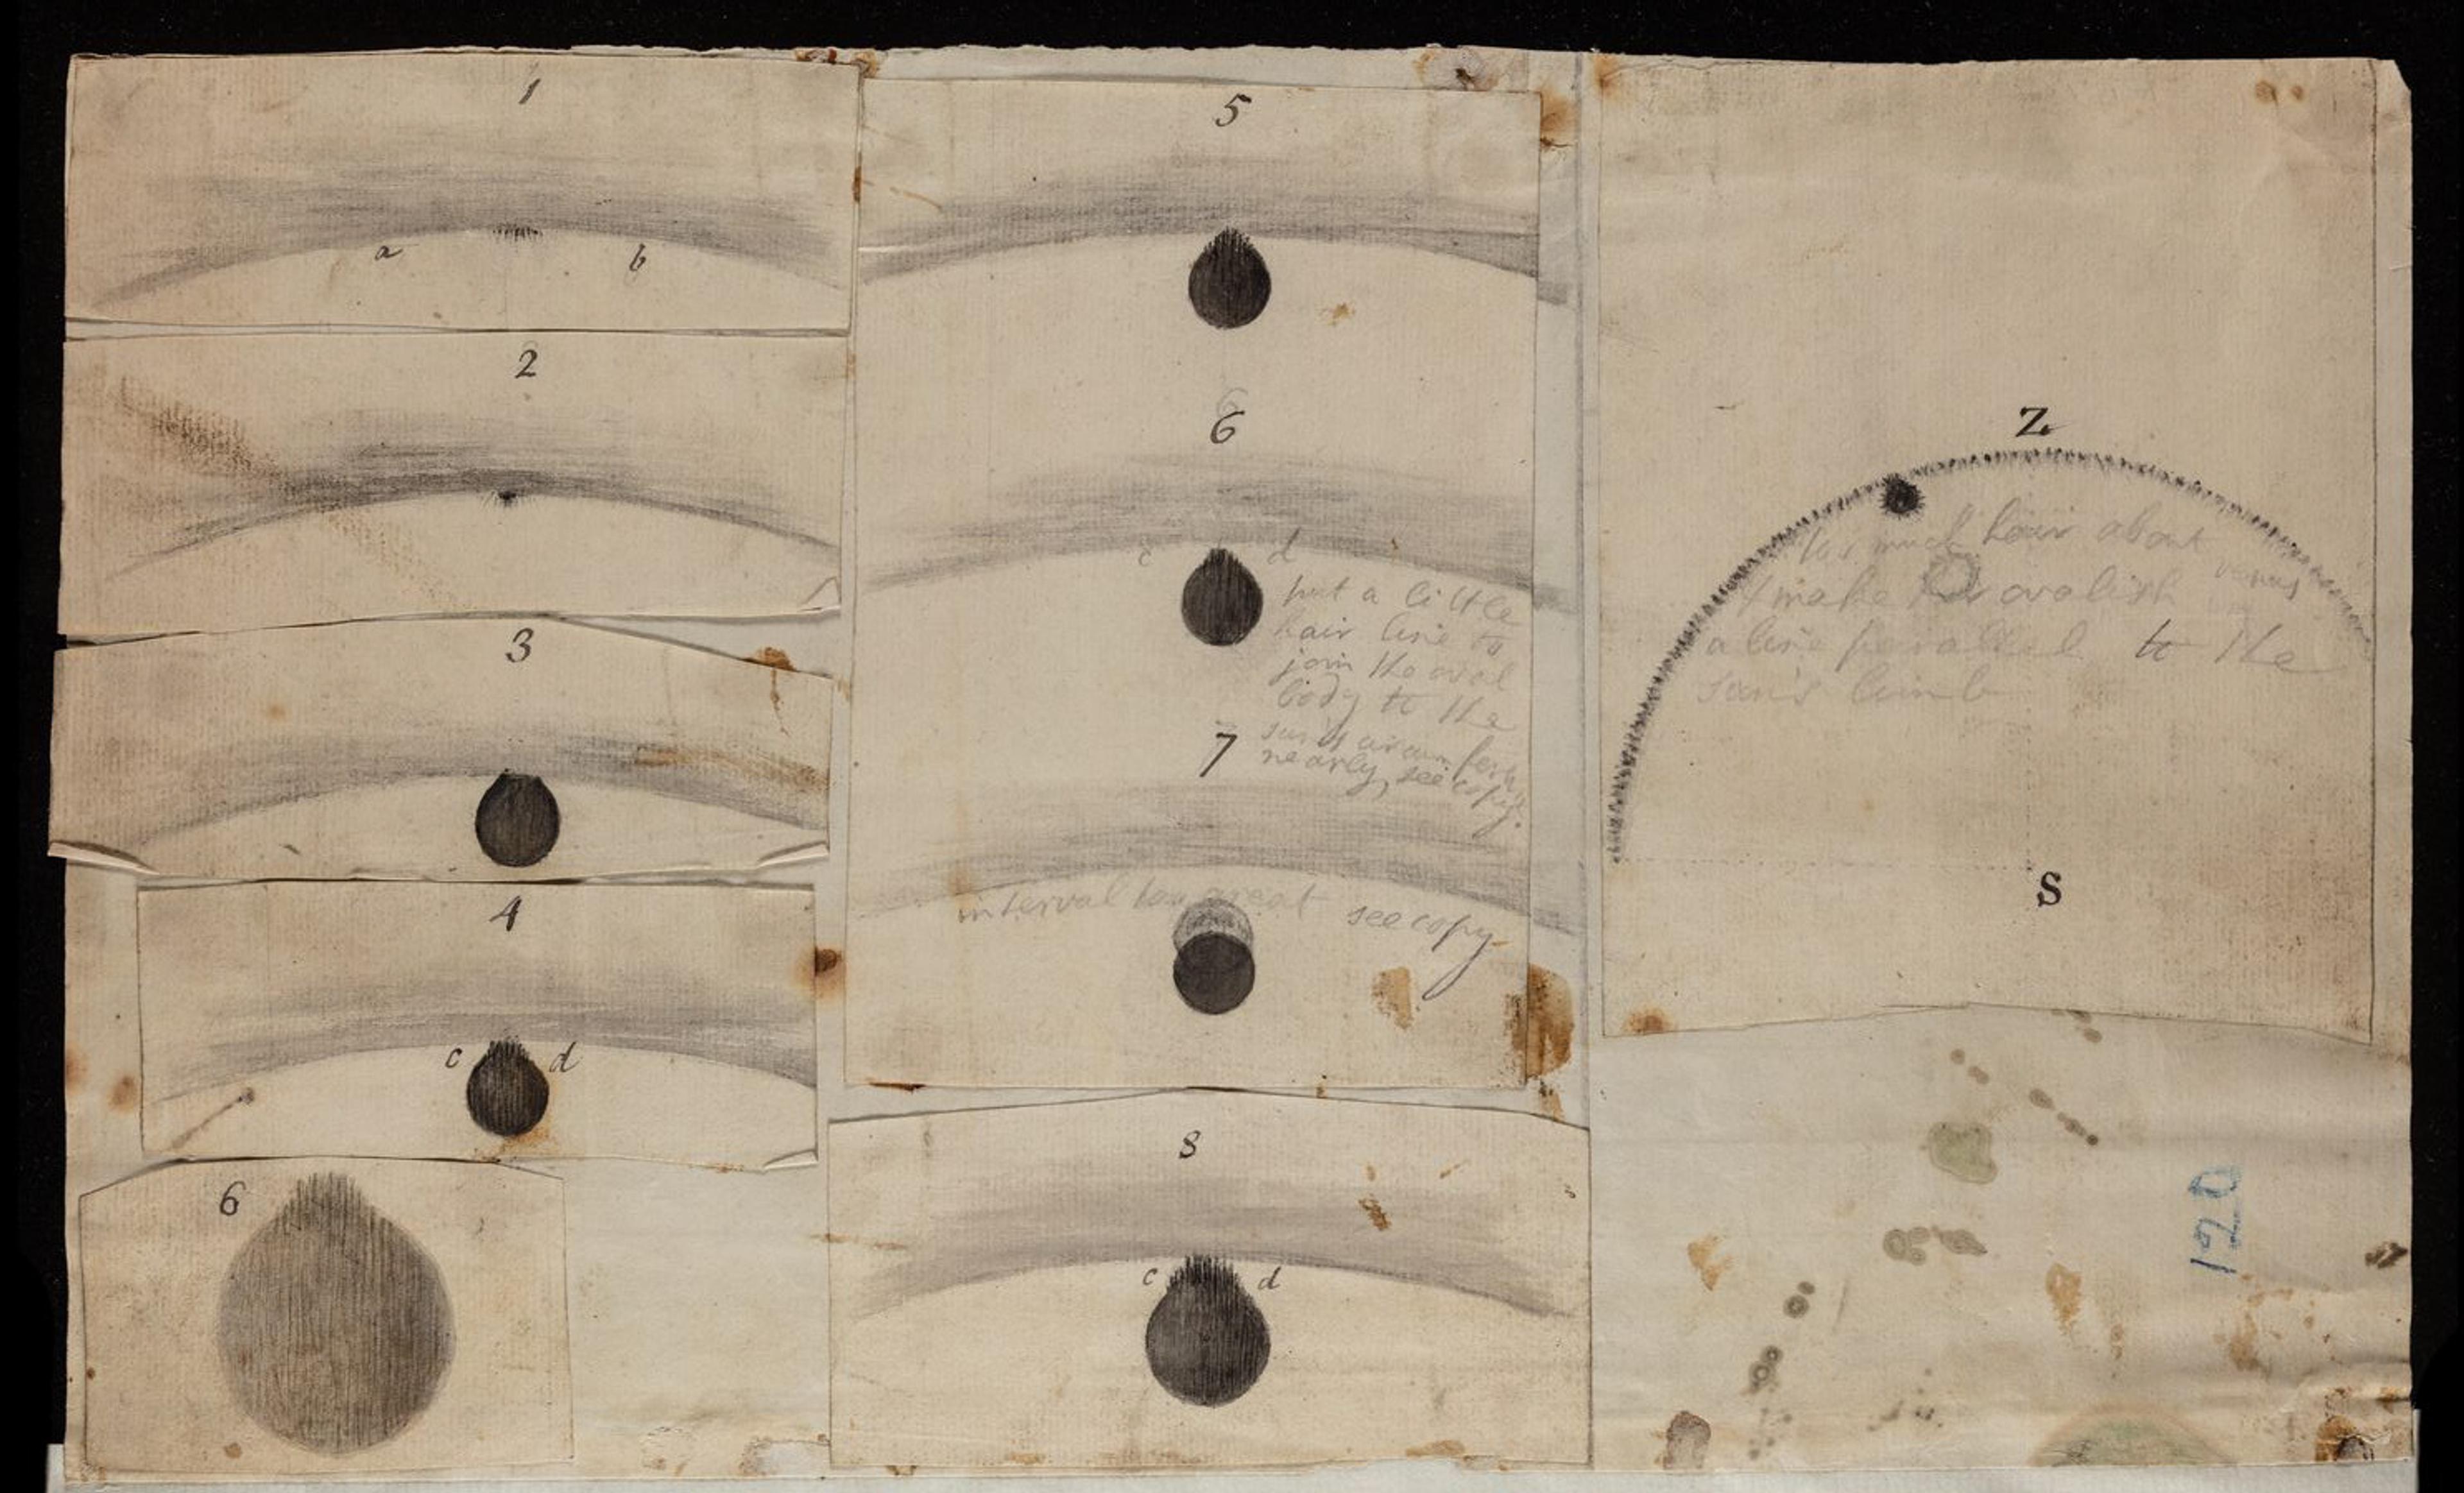 1
a b
2
3
4
c d
6
5
6
c d
put a little
hair line to
join the oval
body to the
sun's circumference
nearly, see copy.
7
interval too great see copy
8
c d
Z
too much hair about
venus
& make her ovalish
a line parallel to the
sun's limb
S
120